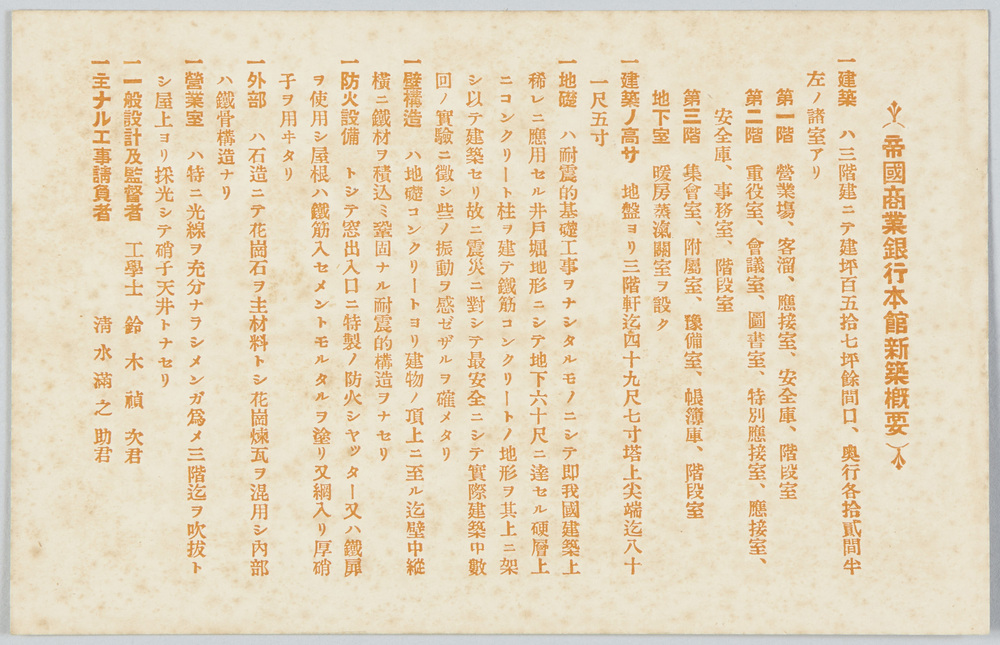 帝國商業銀行本館新築概要
一建築　ハ三階建ニテ建坪百五拾七坪餘間口、奧行各拾貳間半
左ノ諸室アリ
第一階　營業塲、客溜、應接室、安全庫、階段室
第二階　重役室、會議室、圖書室、特別應接室、應接室、
安全庫、事務室、階段室
第三階　集會室、附屬室、豫備室、帳簿庫、階段室
地下室　暖房蒸滊關室ヲ設ク
一建築ノ高サ　地盤ヨリ三階軒迄四十九尺七寸塔上尖端迄八十
一尺五寸
一地礎　ハ耐震的基礎工事ヲナシタルモノニシテ即我國建築上
稀レニ應用セル井戸堀地形ニシテ地下六十尺ニ達セル硬層上
ニコンクリート柱ヲ建テ鐵筋コンクリートノ地形ヲ其上ニ架
シ以テ建築セリ故ニ震災ニ對シテ最安全ニシテ實際建築中數
回ノ實驗ニ徴シ些ノ振動ヲ感ゼザルヲ確メタリ
一壁構造　ハ地礎コンクリートヨリ建物ノ頂上ニ至ル迄壁中縱
橫ニ鐵材ヲ積込ミ鞏固ナル耐震的構造ヲナセリ
一防火設備　トシテ窓出入口ニ特製ノ防火シヤッター又ハ鐵扉
ヲ使用シ屋根ハ鐵筋入セメントモルタルヲ塗リ又綱入リ厚硝
子ヲ用ヰタリ
一外部　ハ石造ニテ花崗石ヲ主材料トシ花崗煉瓦ヲ混用シ內部
ハ鐵骨構造ナリ
一營業室　ハ特ニ光線ヲ充分ナラシメンガ爲メ三階迄ヲ吹拔ト
シ屋上ヨリ採光シテ硝子天井トナセリ
一一般設計及監督者　工學士　鈴木禎次君
一主ナル工事請負者　淸水滿之助君